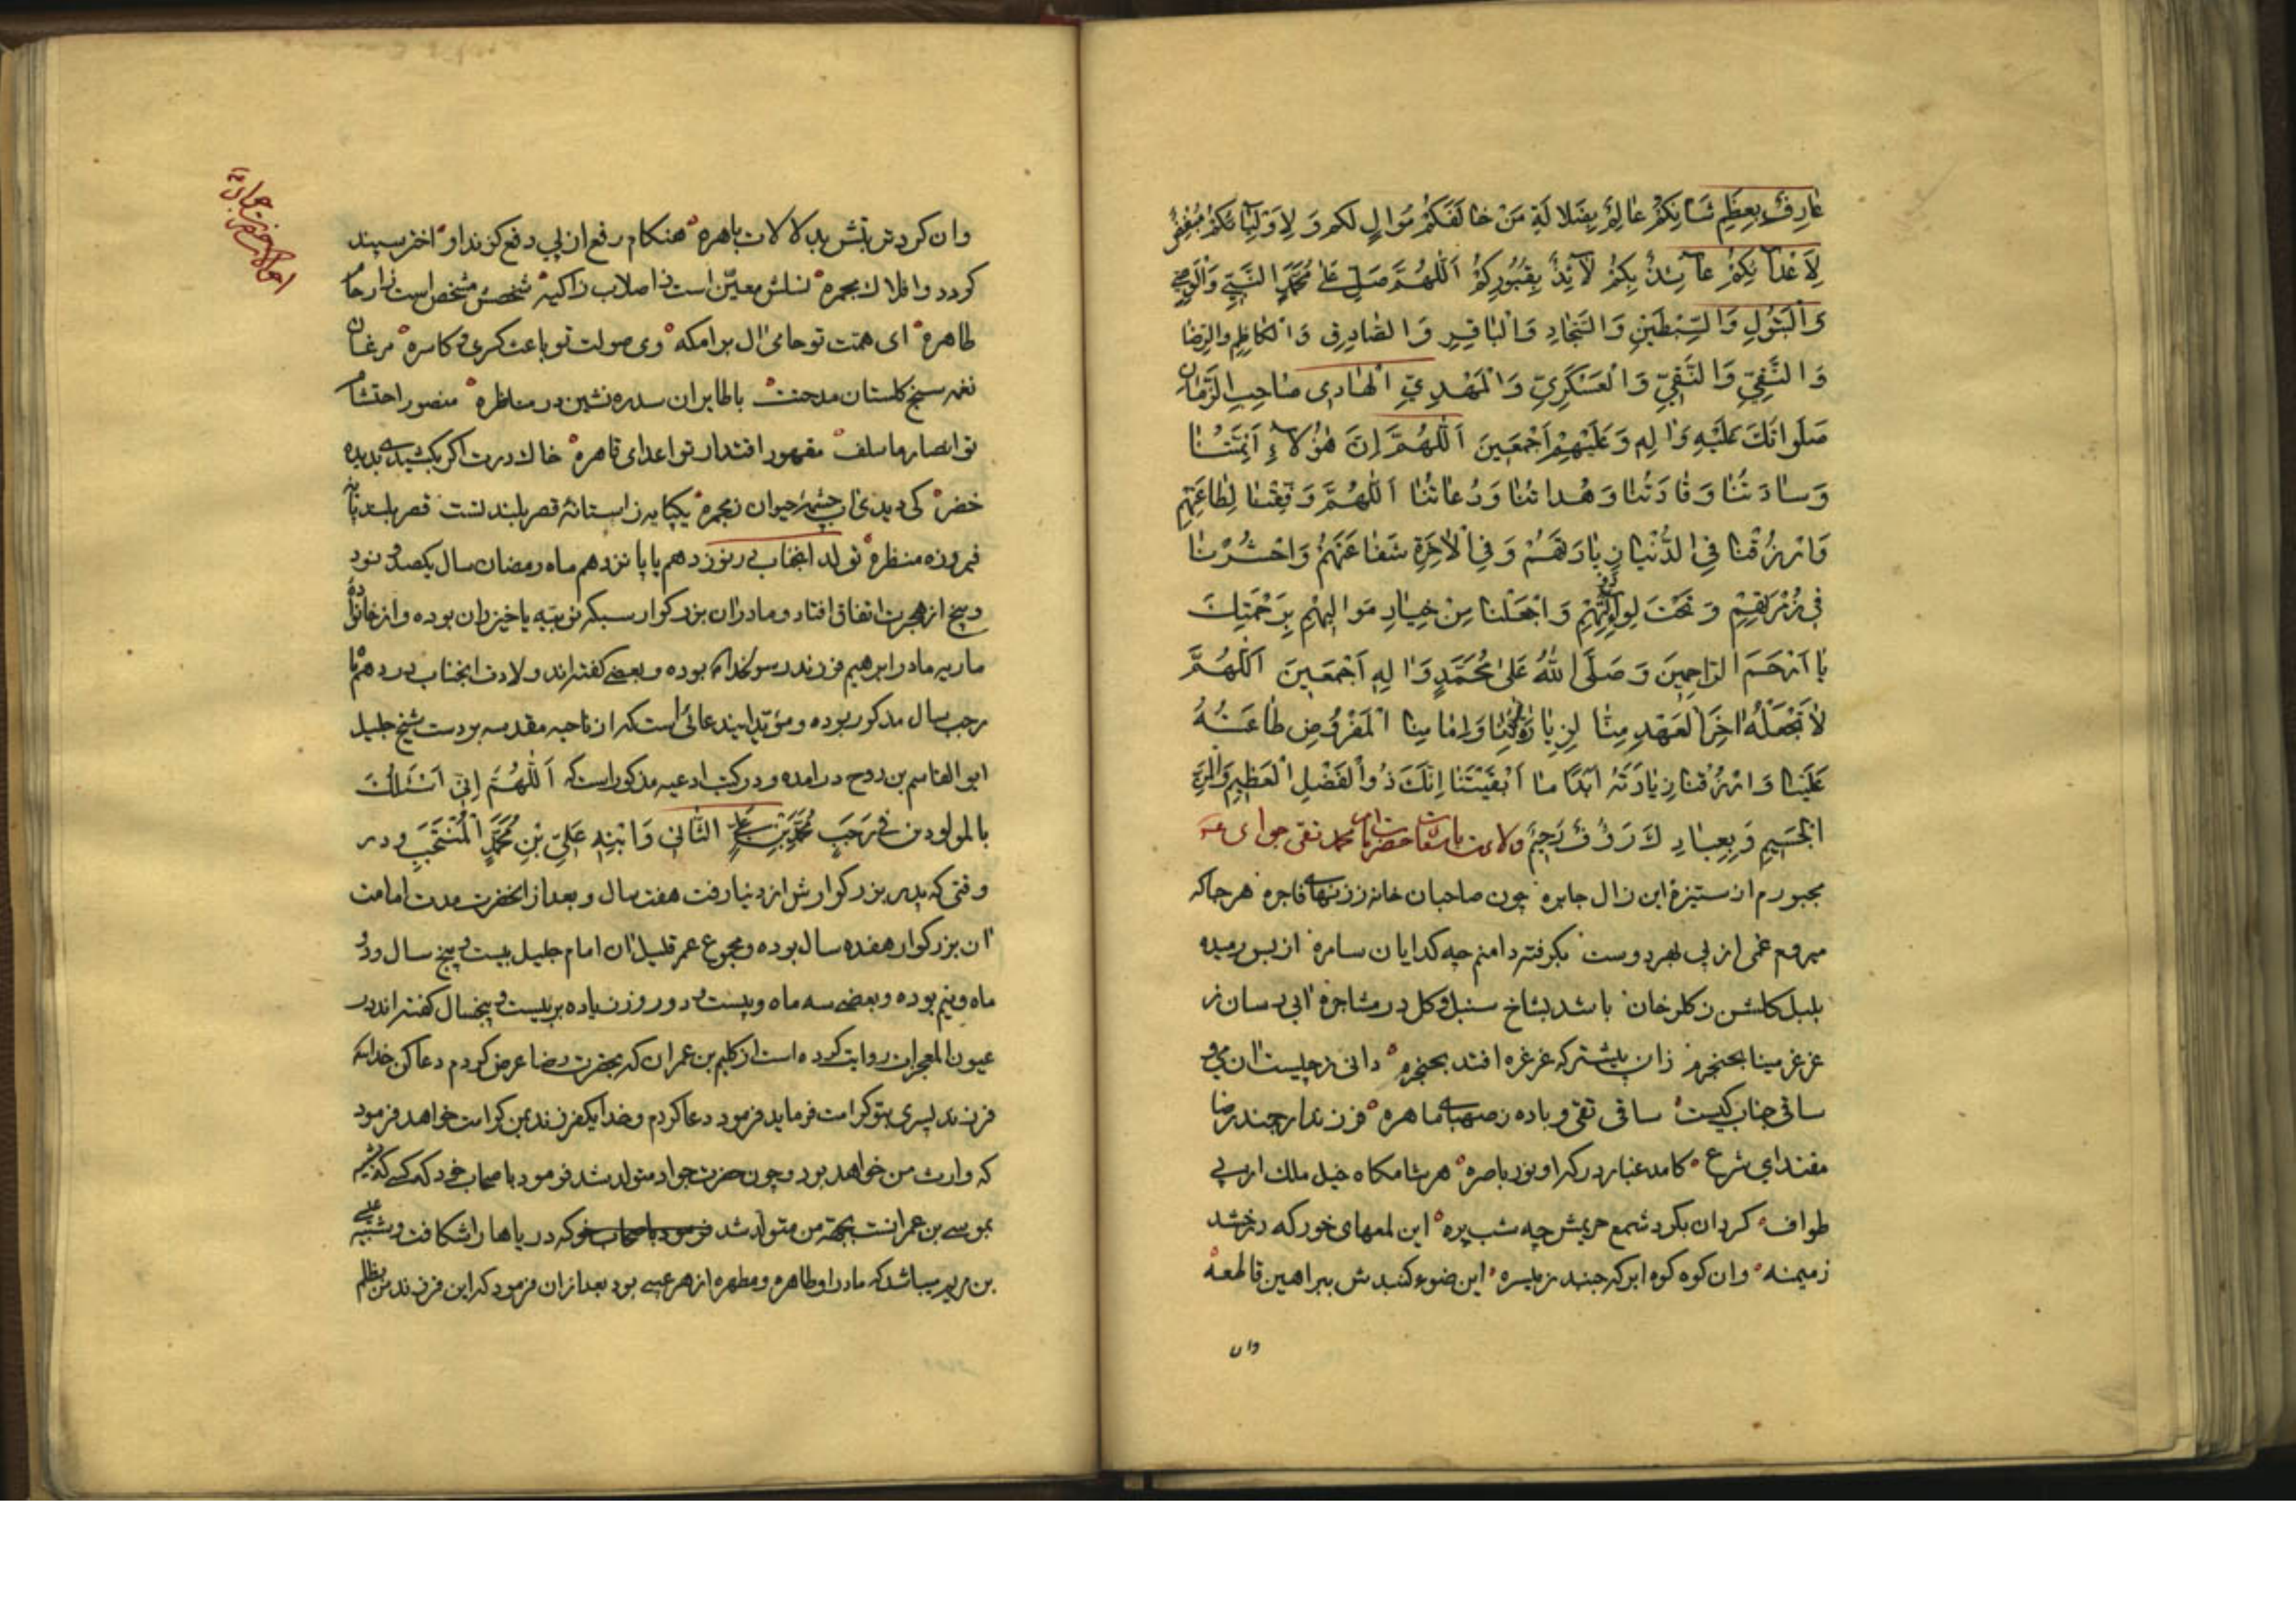 عٰارِفٌ بِعِظَمِ شَأنِكُمْ عٰالِمٌ بِضَلالَةِ مَنْ خٰالَفَكُمْ مُوٰالٍ لكم وَ لِاَوْلِيٰائكُمْ مُبْغِضٌ
لِاَعْدآئِكُمْ عآئِذٌ بِكُمْ لآئِذٌ بِقُبُورِكُمْ اَللّٰهُمَّ صَلِّ عَلٰى مُحَمَّدٍ النَّبِيِّ وَالْوَصِيِّ
وَالْبَتُولِ وَالسِّبْطَيْنِ وَالسَّجّادِ وَالْبٰاقِرِ وَالصّٰادِقِ وَالْكٰاظِمِ والرِّضٰا
وَالتَّقِيِّ وَالنَّقِيِّ وَالْعَسْكَرِيِّ وَالْمَهْدِيِّ الْهٰادى صٰاحِبِ الزَّمٰان
صَلَوٰاتُكَ عَلَيْهِ وَاٰلِهِ وَعَلَيْهِمْ اَجْمَعِينَ اَللّٰهُمَّ اِنَّ هٰؤُلآءِ اَئِمَّتُنٰا
وَسٰادَتُنٰا وَقٰادَتُنٰا وَهُداتُنٰا وَدُعاتُنٰا اَللّٰهُمَّ وَفِّقْنٰا لِطٰاعَتِهِمْ
وَارْزُقْنٰا فِى الدُّنْيٰا زِيٰارَتَهُمْ وَفِى الْاٰخِرَةِ شَفٰاعَتَهُمْ وَاحْشُرْنٰا
فى زُمْرَتِهِمْ وَتَحْتَ لِوآئِهِمْ وَاجْعَلْنٰا مِنْ خِيٰارِ مَوٰاليهِمْ بِرَحْمَتِكَ
يٰا اَرْحَمَ الرّٰاحِمِينَ وَصَلَّى اللّٰهُ عَلىٰ مُحَمَّدٍ وَاٰلِهِ اَجْمَعِينَ اَللّٰهُمَّ
لٰا تَجْعَلْهُ اٰخِرَ الْعَهْدِ مِنّٰا لِزِيٰارَةِ وَاِمٰامِنٰا الْمَفْرُوضِ طٰاعَتُهُ
عَلَيْنٰا وَارْزُقْنٰا زِيٰارَتَهُ اَبَدًا مٰا اَبْقَيْتَنٰا اِنَّكَ ذُوالْفَضْلِ الْعَظِيمِ وَالْمَنِّ
الْجَسِيمِ وَبِعِبٰادِكَ رَؤُفٌ رَحِيمٌ ولادت باسعادت حضرت امام محمد تقى جواد ع
مجبورم از ستيزهٔ اين زال جابره چون صاحبان خانه ززنهاى فاجره هرجاكه
ميروم غمى از پى بهر دوست بكرفته دامنم چه كدايان سامره از بس رميده
بلبل كلشن ز كلرخان باشد بشاخ سنبل وكل در مشاجره ابى رسان ز
غزغز مينا بحنجرم زان پيشتر كه غرغره افتد بحنجره دانى ز چيست ان مى و
ساقى جناب كيست ساقى تقى و باده ز صهباى ماهره فرزند ارجمند رضا
مقتداى شرع كامد غبار دركه او نور باصره هر شامكاه خيل ملك از پى
طواف كردان بكرد شمع حريمش چه شب پره اين لمعهاى خور كه درخشد
زميمنه وان كوه كوه ابر كه جنبد ز ميسره اين ضوء كنبدش ببراهين قاطعه
وان
احوالات حضرت جواد ع
وان كرد تربتش بدلالات باهره هنكام رفع ان پى دفع كزند او اختر سپند
كردد و افلاك مجمره نسلش معيّن است ز اصلاب زاكيه شخصش مشخص است ز ارحام
طاهره اى همّت تو حامى ال برامكه وى صولت تو باعث كسرى و كاسره مرغان
نغمه سنج كلستان مدحتت باطايران سدره نشين در مناظره منصور احتشام
تو انصار ماسلف مقهور اقتدار تو اعداى قاهره خاك درت اكر بكشيدى بديده
خضر كى ديدى اب چشمهٔ حيوان زمجره يكپايه زاستانهٔ قصر بلند تست قصر بلند پايهٔ
فيروزه منظره تولد انجناب در نوزدهم يا پانزدهم ماه رمضان سال يكصد و نود
و پنج از هجرت اتفاق افتاد و مادر ان بزركوار سبيكه نوبيّه يا خيزران بوده و از خانوادهٔ
ماريه مادر ابرهيم فرزند رسولخدا بوده و بعضى كفته‌اند ولادت انجناب در دهم ماه
رجب سال مذكور بوده و مؤيّد اينستد دعائى است كه از ناحيه مقدسه بر دست شيخ جليل
ابو القاسم بن روح درامده و در كتب ادعيه مذكور است كه اَللّٰهُمَّ اِنّى اَسْئَلُكَ
بالمولودين فى رَجَبٍ مُحَمَّدِ بْنِ عَلِىٍّ الثّٰانى وَابْنِهِ عَلِىِّ بْنِ مُحَمَّدٍ الْمُنْتَجَبِ و در
وقتى كه پدر بزركوارش از دنيا رفت هفت سال و بعد از انحضرت مدت امامت
ان بزركوار هفده سال بوده و مجموع عمر قليل ان امام جليل بيست و پنج سال و دو
ماه و نيم بوده و بعضى سه ماه و بيست و دو روز زياده بر بيست و پنجسال كفته‌اند در
عيون المعجزات روايت كرده است از كليم بن عمران كه بحضرت رضا عرض كردم دعا كن خدايكه
فرزند پسرى بتو كرامت فرمايد فرمود دعا كردم و خدا يكفرزند بمن كرامت خواهد فرمود
كه وارث من خواهد بود و چون حضرت جواد متولد شد فرمود باصحاب خود كه كسى كه شبيه
بموسى بن عمرانست بجهة من متولد شد فرمود باصحاب خود كه درياها را شكافت و شبيه عيسى
بن مريم ميباشد كه مادر او طاهره و مطهره از هر عيب بود بعد از ان فرمود كه اين فرزند من بظلم